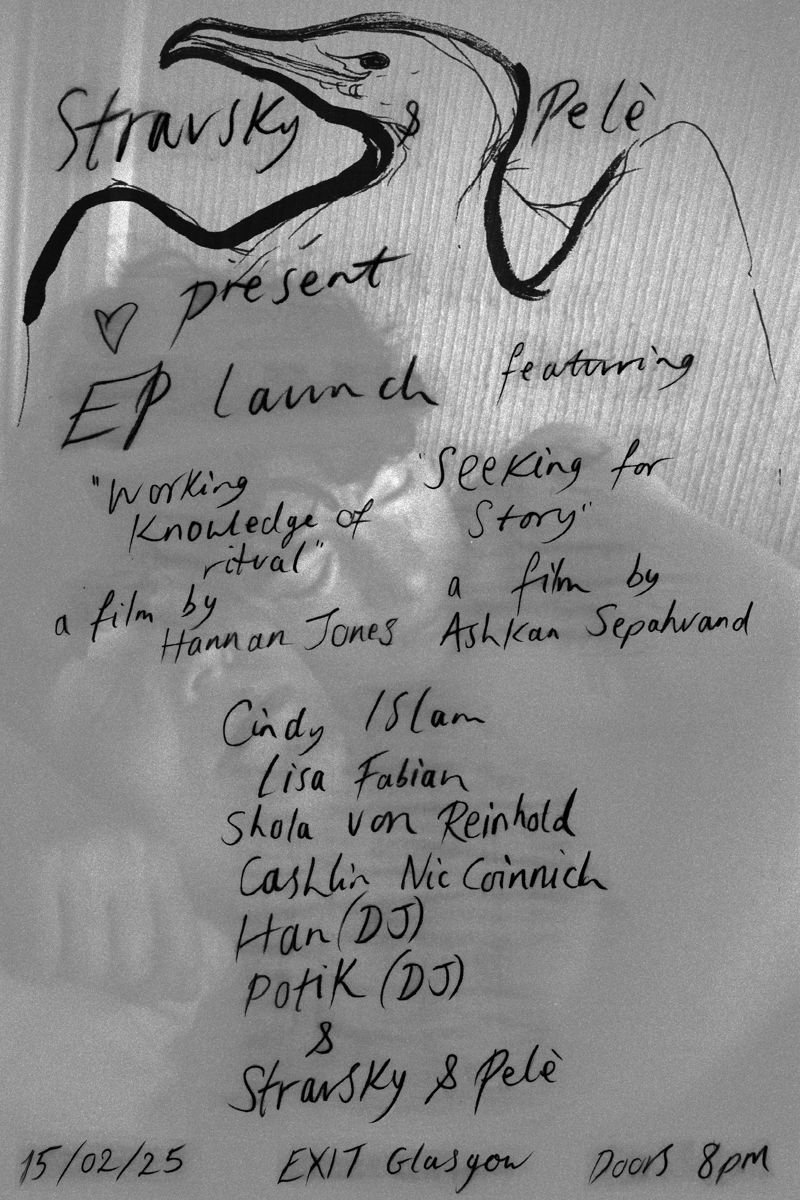 Stravsky & Pelè
♡ present
EP launch featuring
"Working
Knowledge of
ritual"
a film by
Hannan Jones
"Seeking for
Story"
a film by
Ashkan Sepahvand
Cindy ISlam
Lisa Fabian
Shola von Reinhold
Cashlin Nic Coinnich
Han (DJ)
Potik (DJ)
&
Stravsky & Pelè
15/02/25 EXIT Glasgow Doors 8pm